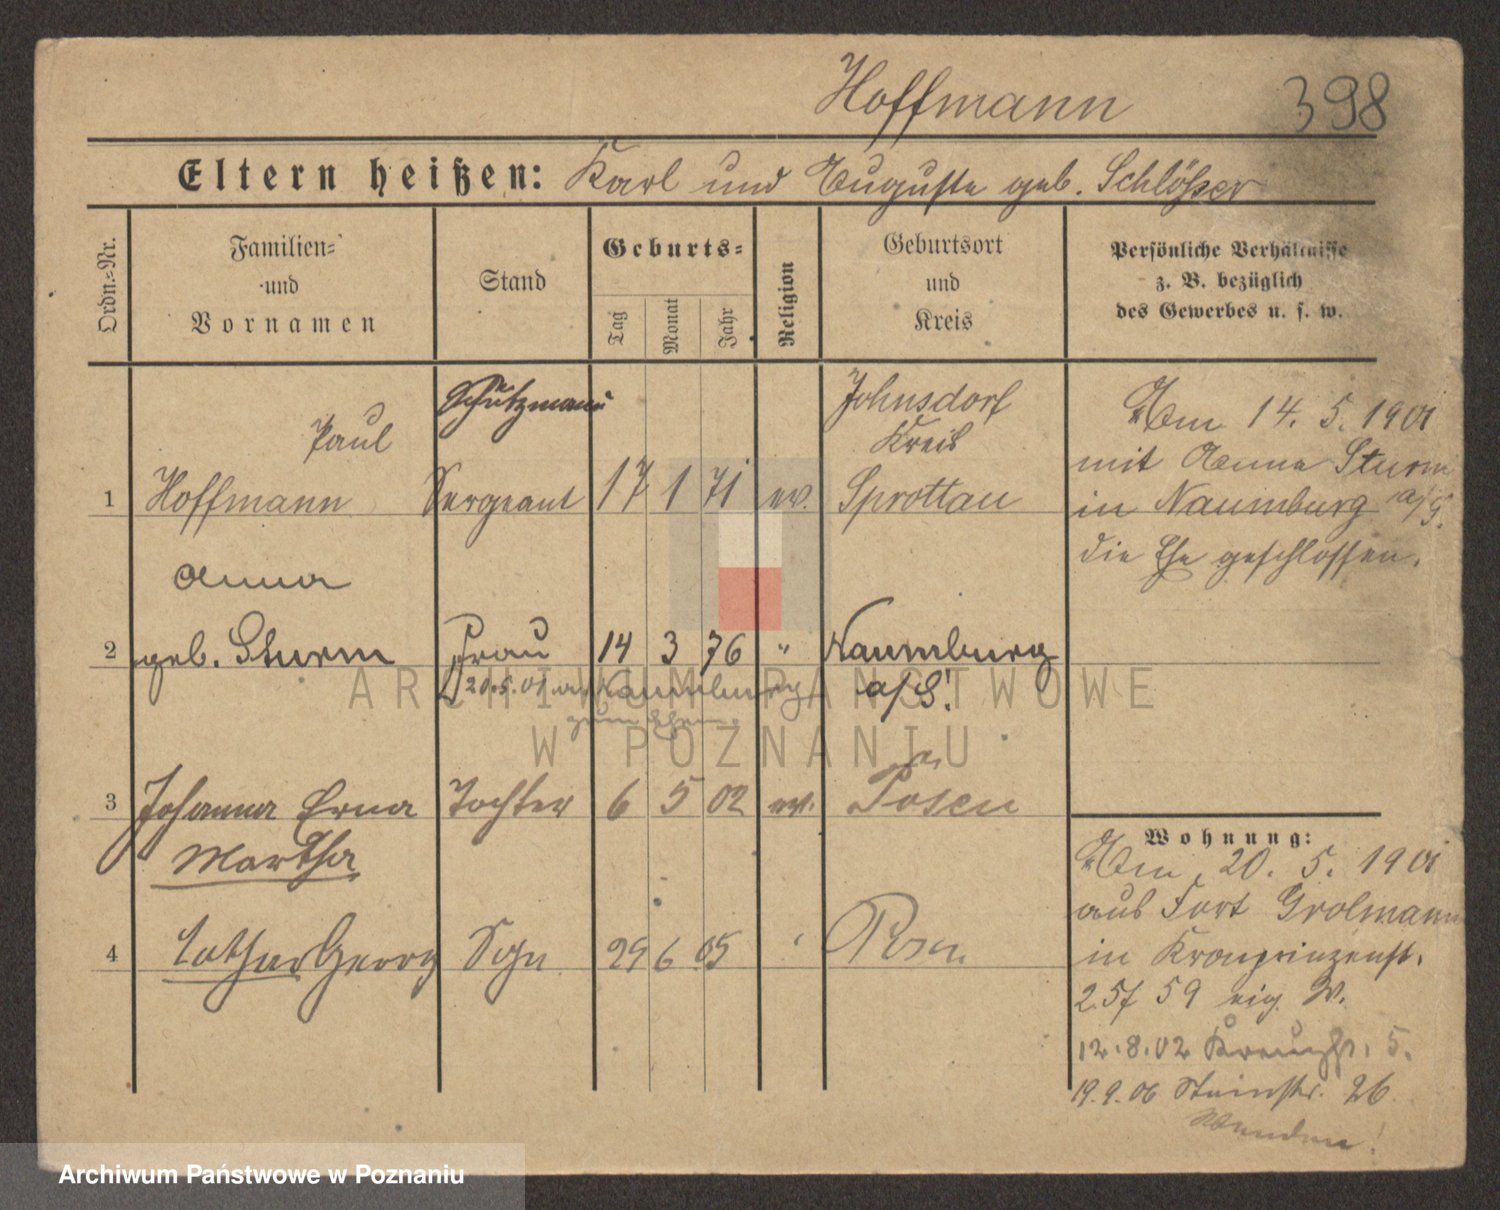 Hoffmann 398
Eltern heißen: Karl und Auguste geb. Schlößer
Ordn.-Nr.
Familien-
und
Vornamen
Stand
Geburts-
Tag
Monat
Jahr
Religion
Geburtsort
und
Kreis
Persönliche Verhältnisse
z. B. bezüglich
des Gewerbes u. s. w.
Schutzmann
Paul
1 Hoffmann Sergeant 17 1 71 ev.
Johnsdorf
Kreis
Sprottau
Am 14. 5. 1901
mit Anna Sturm
in Naumburg a/S.
die Ehe geschlossen.
Anna
2 geb. Sturm Frau 14 3 76 " Naumburg
a/S.
20.5.01 Naumburg
3 Johanna Erna Tochter 6 5 02 ev. Posen
Martha
4 Lothar Georg Sohn 29 6 05 Posen
Wohnung:
Am 20. 5. 1901
aus Fort Grolmann
in Kronprinzenst.
59 eig. W.
12.8.02 Kreuzstr. 5.
19.9.06 Steinstr. 26
Wenden!
ARCHIWUM PAŃSTWOWE
W POZNANIU
Archiwum Państwowe w Poznaniu